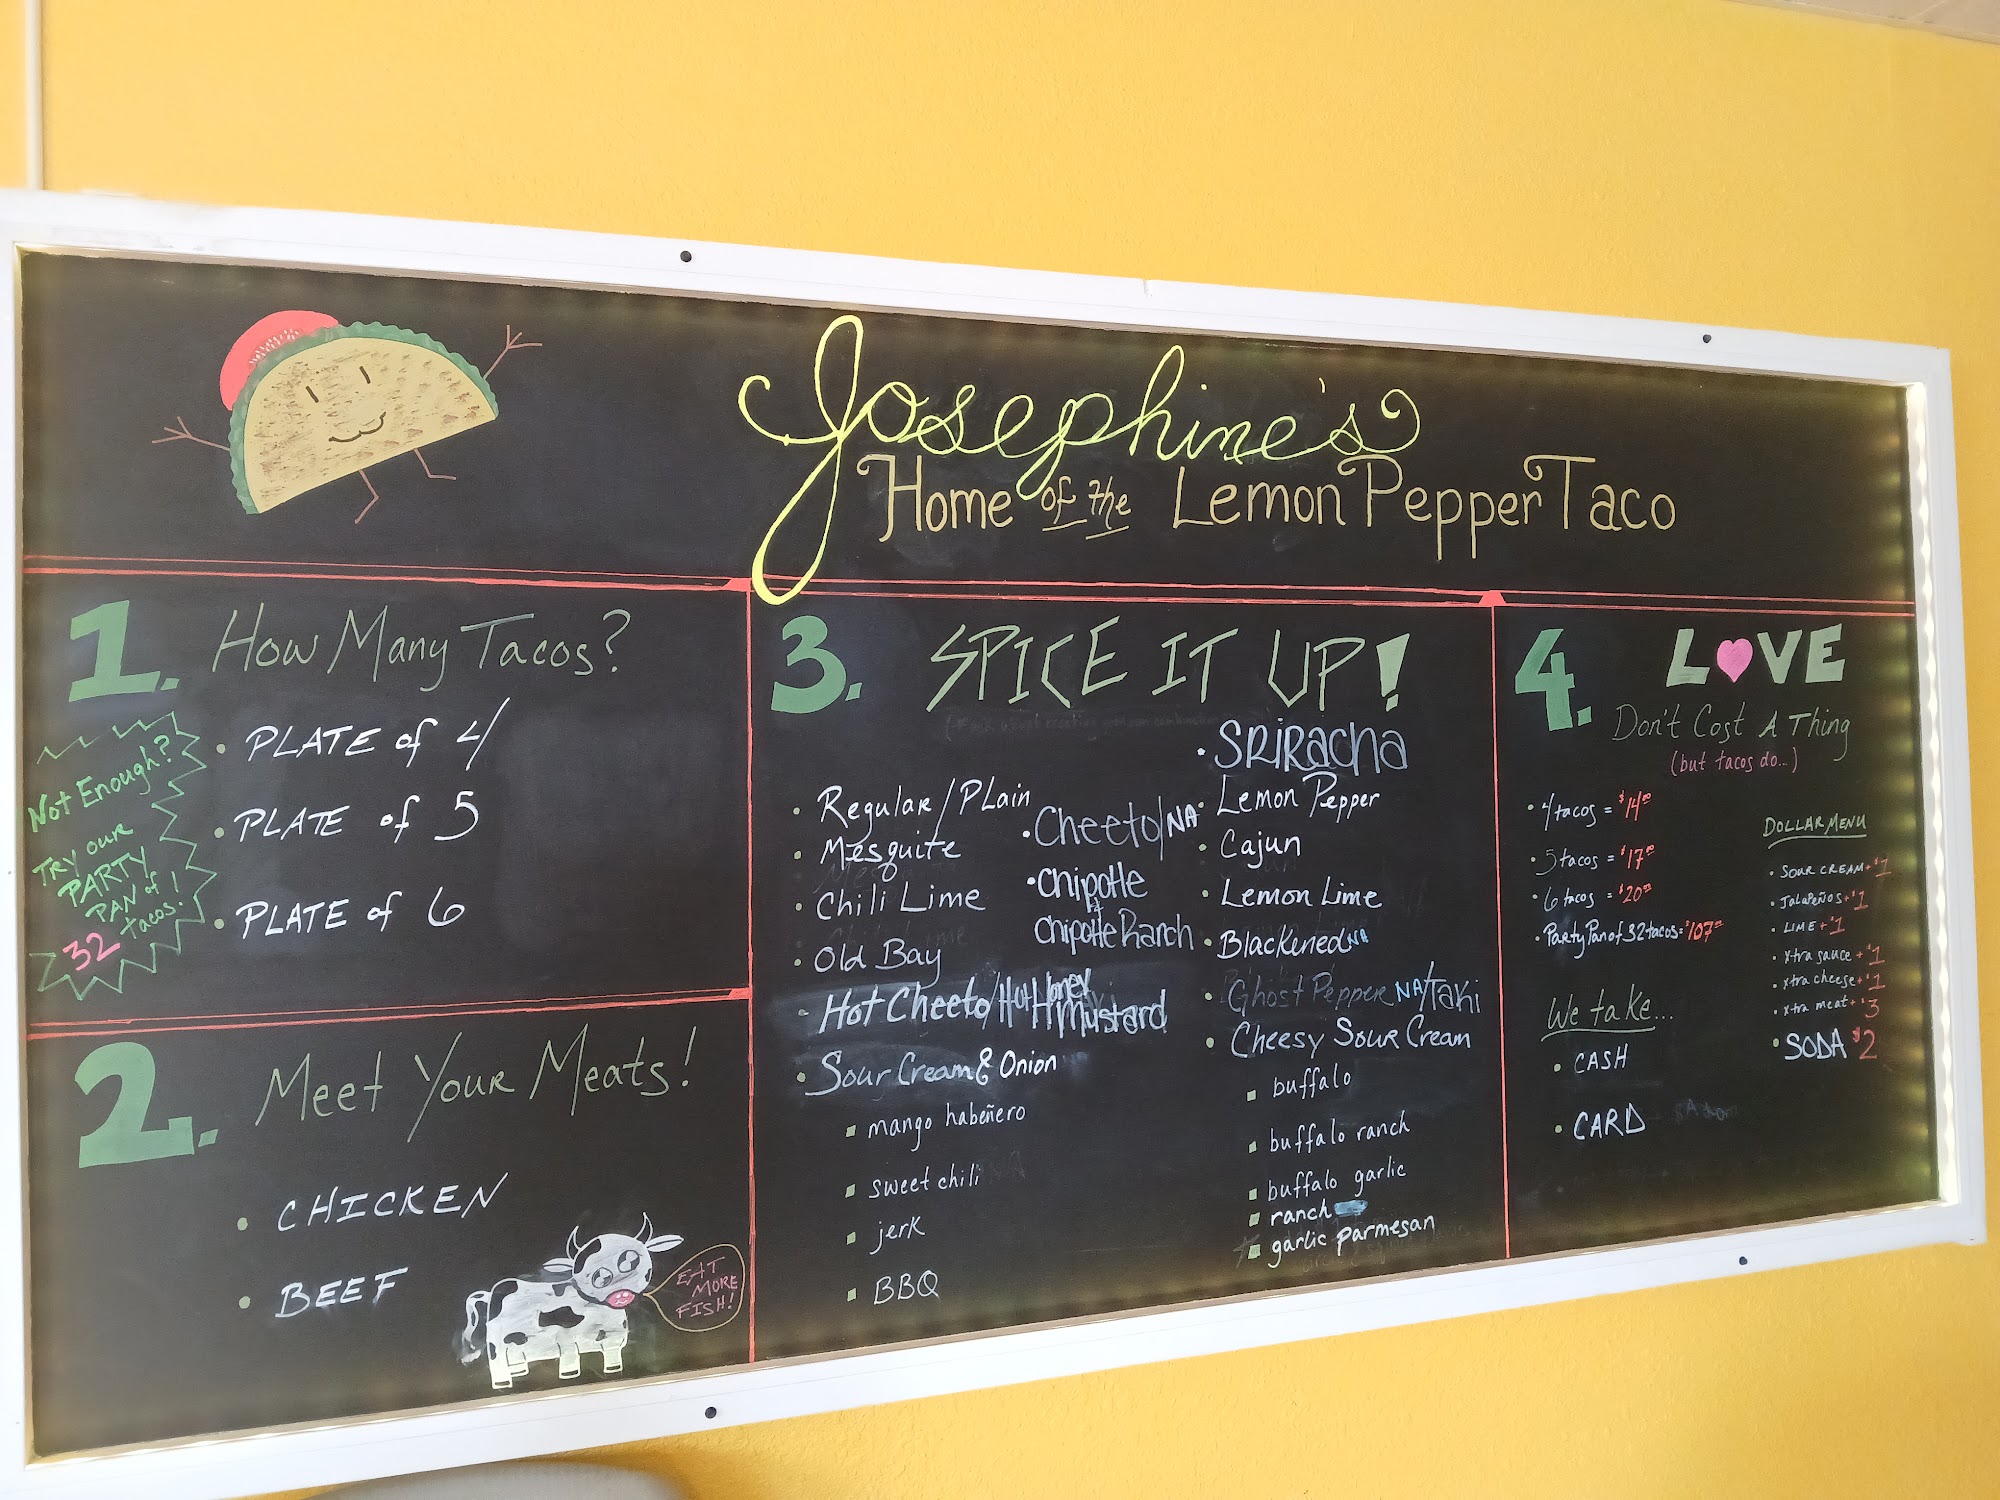 Josephine's
Home of the Lemon Pepper Taco
1. How Many Tacos?
• PLATE of 4
• PLATE of 5
• PLATE of 6
Not Enough?
Try our
PARTY
PAN of
32 tacos!
2. Meet Your Meats!
• CHICKEN
• BEEF
EAT
MORE
FISH!
3. SPICE IT UP!
• Regular/Plain
• Mesquite
• Chili Lime
• Old Bay
• Hot Cheeto/Hot Honey Mustard
• Sour Cream & Onion
mango habeñero
sweet chili
jerk
BBQ
• Cheeto/NA
• Chipotle
&
Chipotle Ranch
• SRIRACHA
• Lemon Pepper
• Cajun
• Lemon Lime
• Blackened NA
• Ghost Pepper NA/Taki
• Cheesy Sour Cream
buffalo
buffalo ranch
buffalo garlic
ranch
garlic parmesan
4. LOVE
Don't Cost A Thing
(but tacos do...)
• 4 tacos = $14.00
• 5 tacos = $17.00
• 6 tacos = $20.00
• Party Pan of 32 tacos = $107.00
We take...
• CASH
• CARD
DOLLAR MENU
• SOUR CREAM + $1
• JALAPEÑOS + $1
• LIME + $1
• xtra sauce + $1
• xtra cheese + $1
• xtra meat + $3
• SODA $2